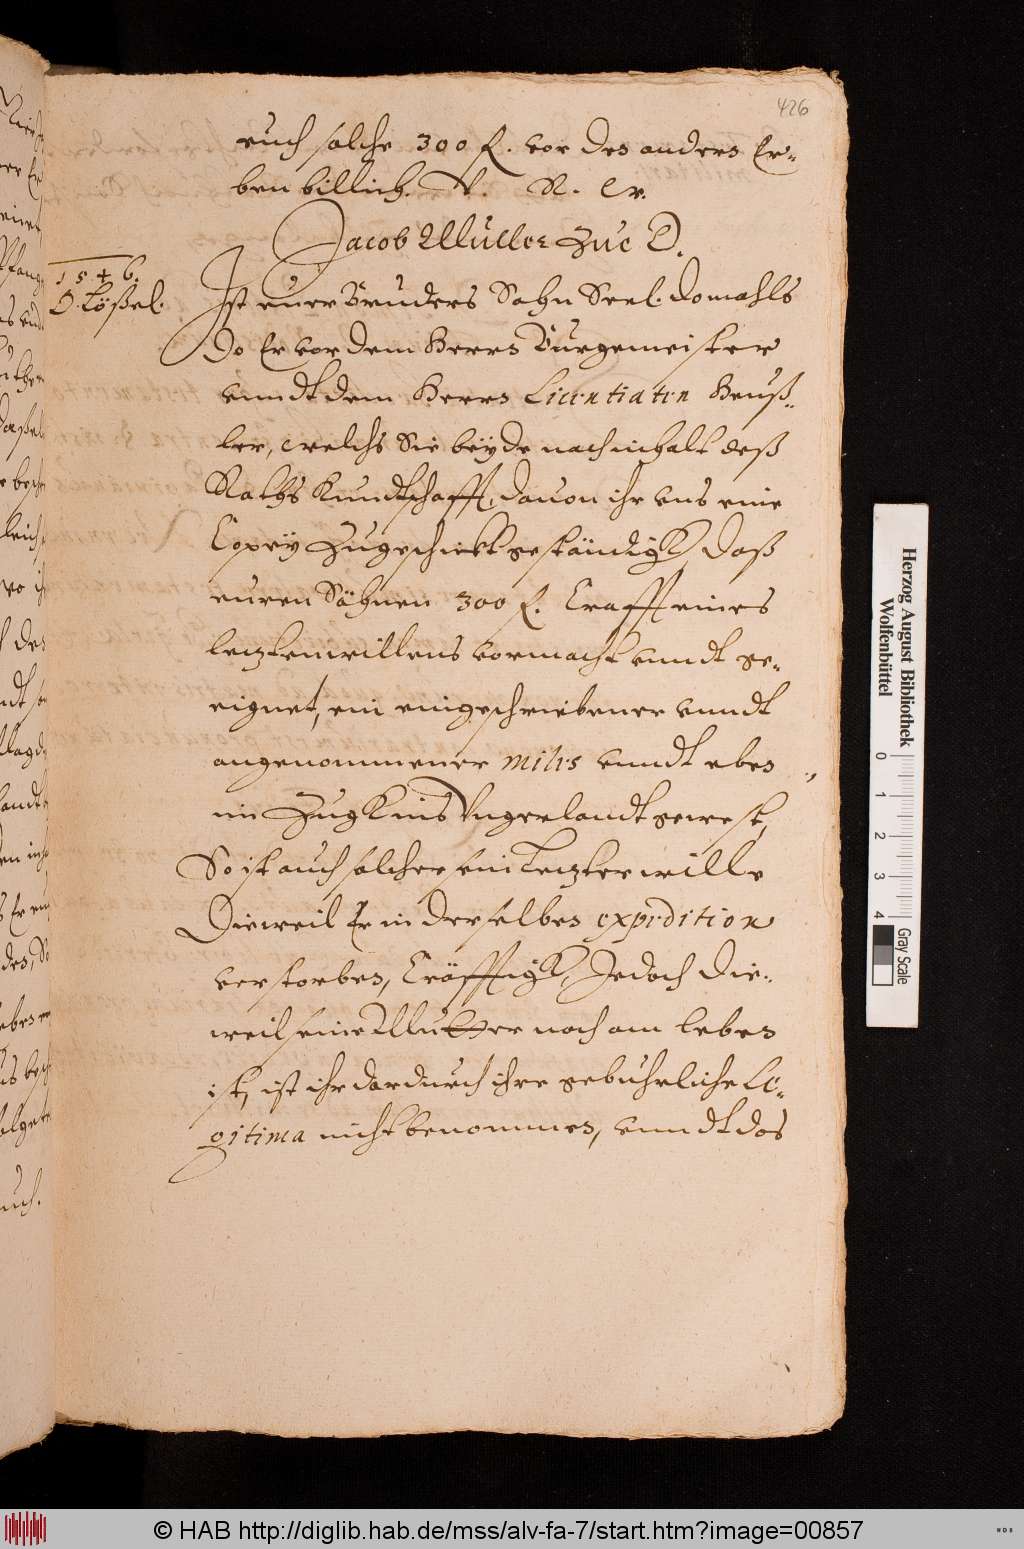 426
euch solche 300 f. vor des anders Er-
ben billich. V. R. W.
Jacob Muller zue D.
1546.
D. Lößel.
Ist euer Bruders Sohn Seel. domahls
do Er vor dem Herrn Burgemeister
vnndt dem Herrn Licentiaten Heuß-
ler, welchs Sie beyde nach inhalt deß
Raths Kundtschafft, dauon ihr vns eine
Copey zugeschickt geständigk, daß
euren Söhnen 300 f. Crafft eines
letztenwillens vormacht vnndt ge-
eignet, ein eingeschriebener vnndt
angenommener miles vnndt eben
im Zugk ins Vngerlandt gewest,
So ist auch solcher sein Letzter wille
Dieweil Er in derselben expedition
verstorben, Cräfftigk, Jedoch die-
weil seine Mutter noch am leben
ist, ist ihr dardurch ihre gebuhrliche Le-
gitima nicht benommen, vnndt das
Herzog August Bibliothek
Wolfenbüttel
0 1 2 3 4
Gray Scale
© HAB http://diglib.hab.de/mss/alv-fa-7/start.htm?image=00857